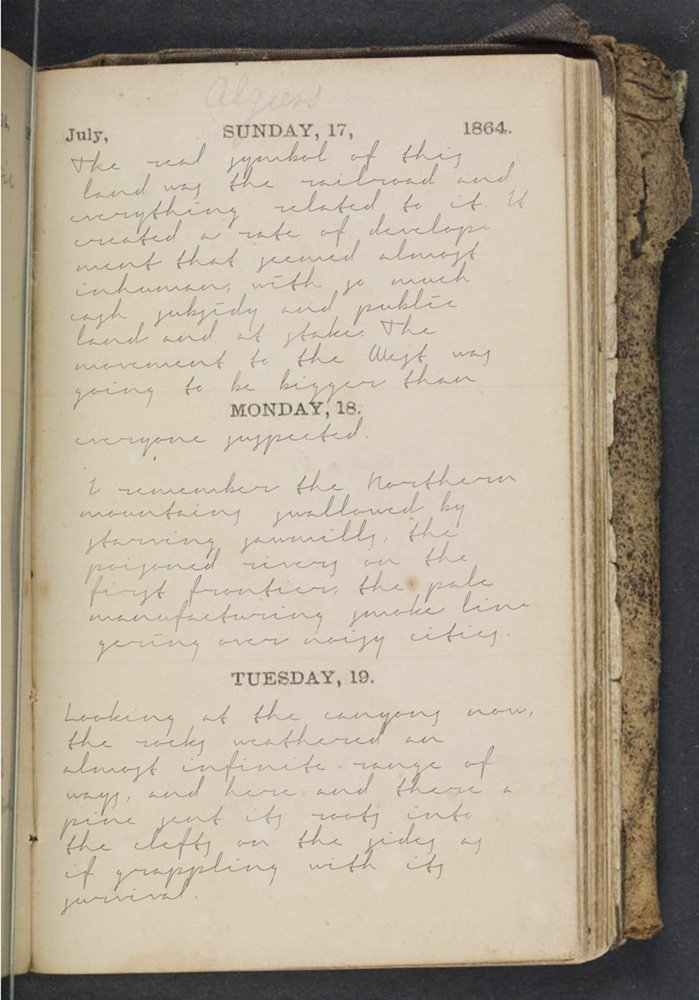 Algiers
July, SUNDAY, 17, 1864.
The real symbol of this
land was the railroad and
everything related to it. It
created a rate of develop-
ment that seemed almost
inhuman, with so much
cash subsidy and public
land and at stake. The
movement to the West was
going to be bigger than
MONDAY, 18.
everyone suspected.
I remember the Northern
mountains swallowed by
starving sawmills, the
poisoned rivers on the
first frontier, the pale
manufacturing smoke lin-
gering over noisy cities.
TUESDAY, 19.
Looking at the canyons now,
the rocks weathered an
almost infinite range of
ways, and here and there a
pine sent its roots into
the clefts on the sides as
if grappling with its
survival.